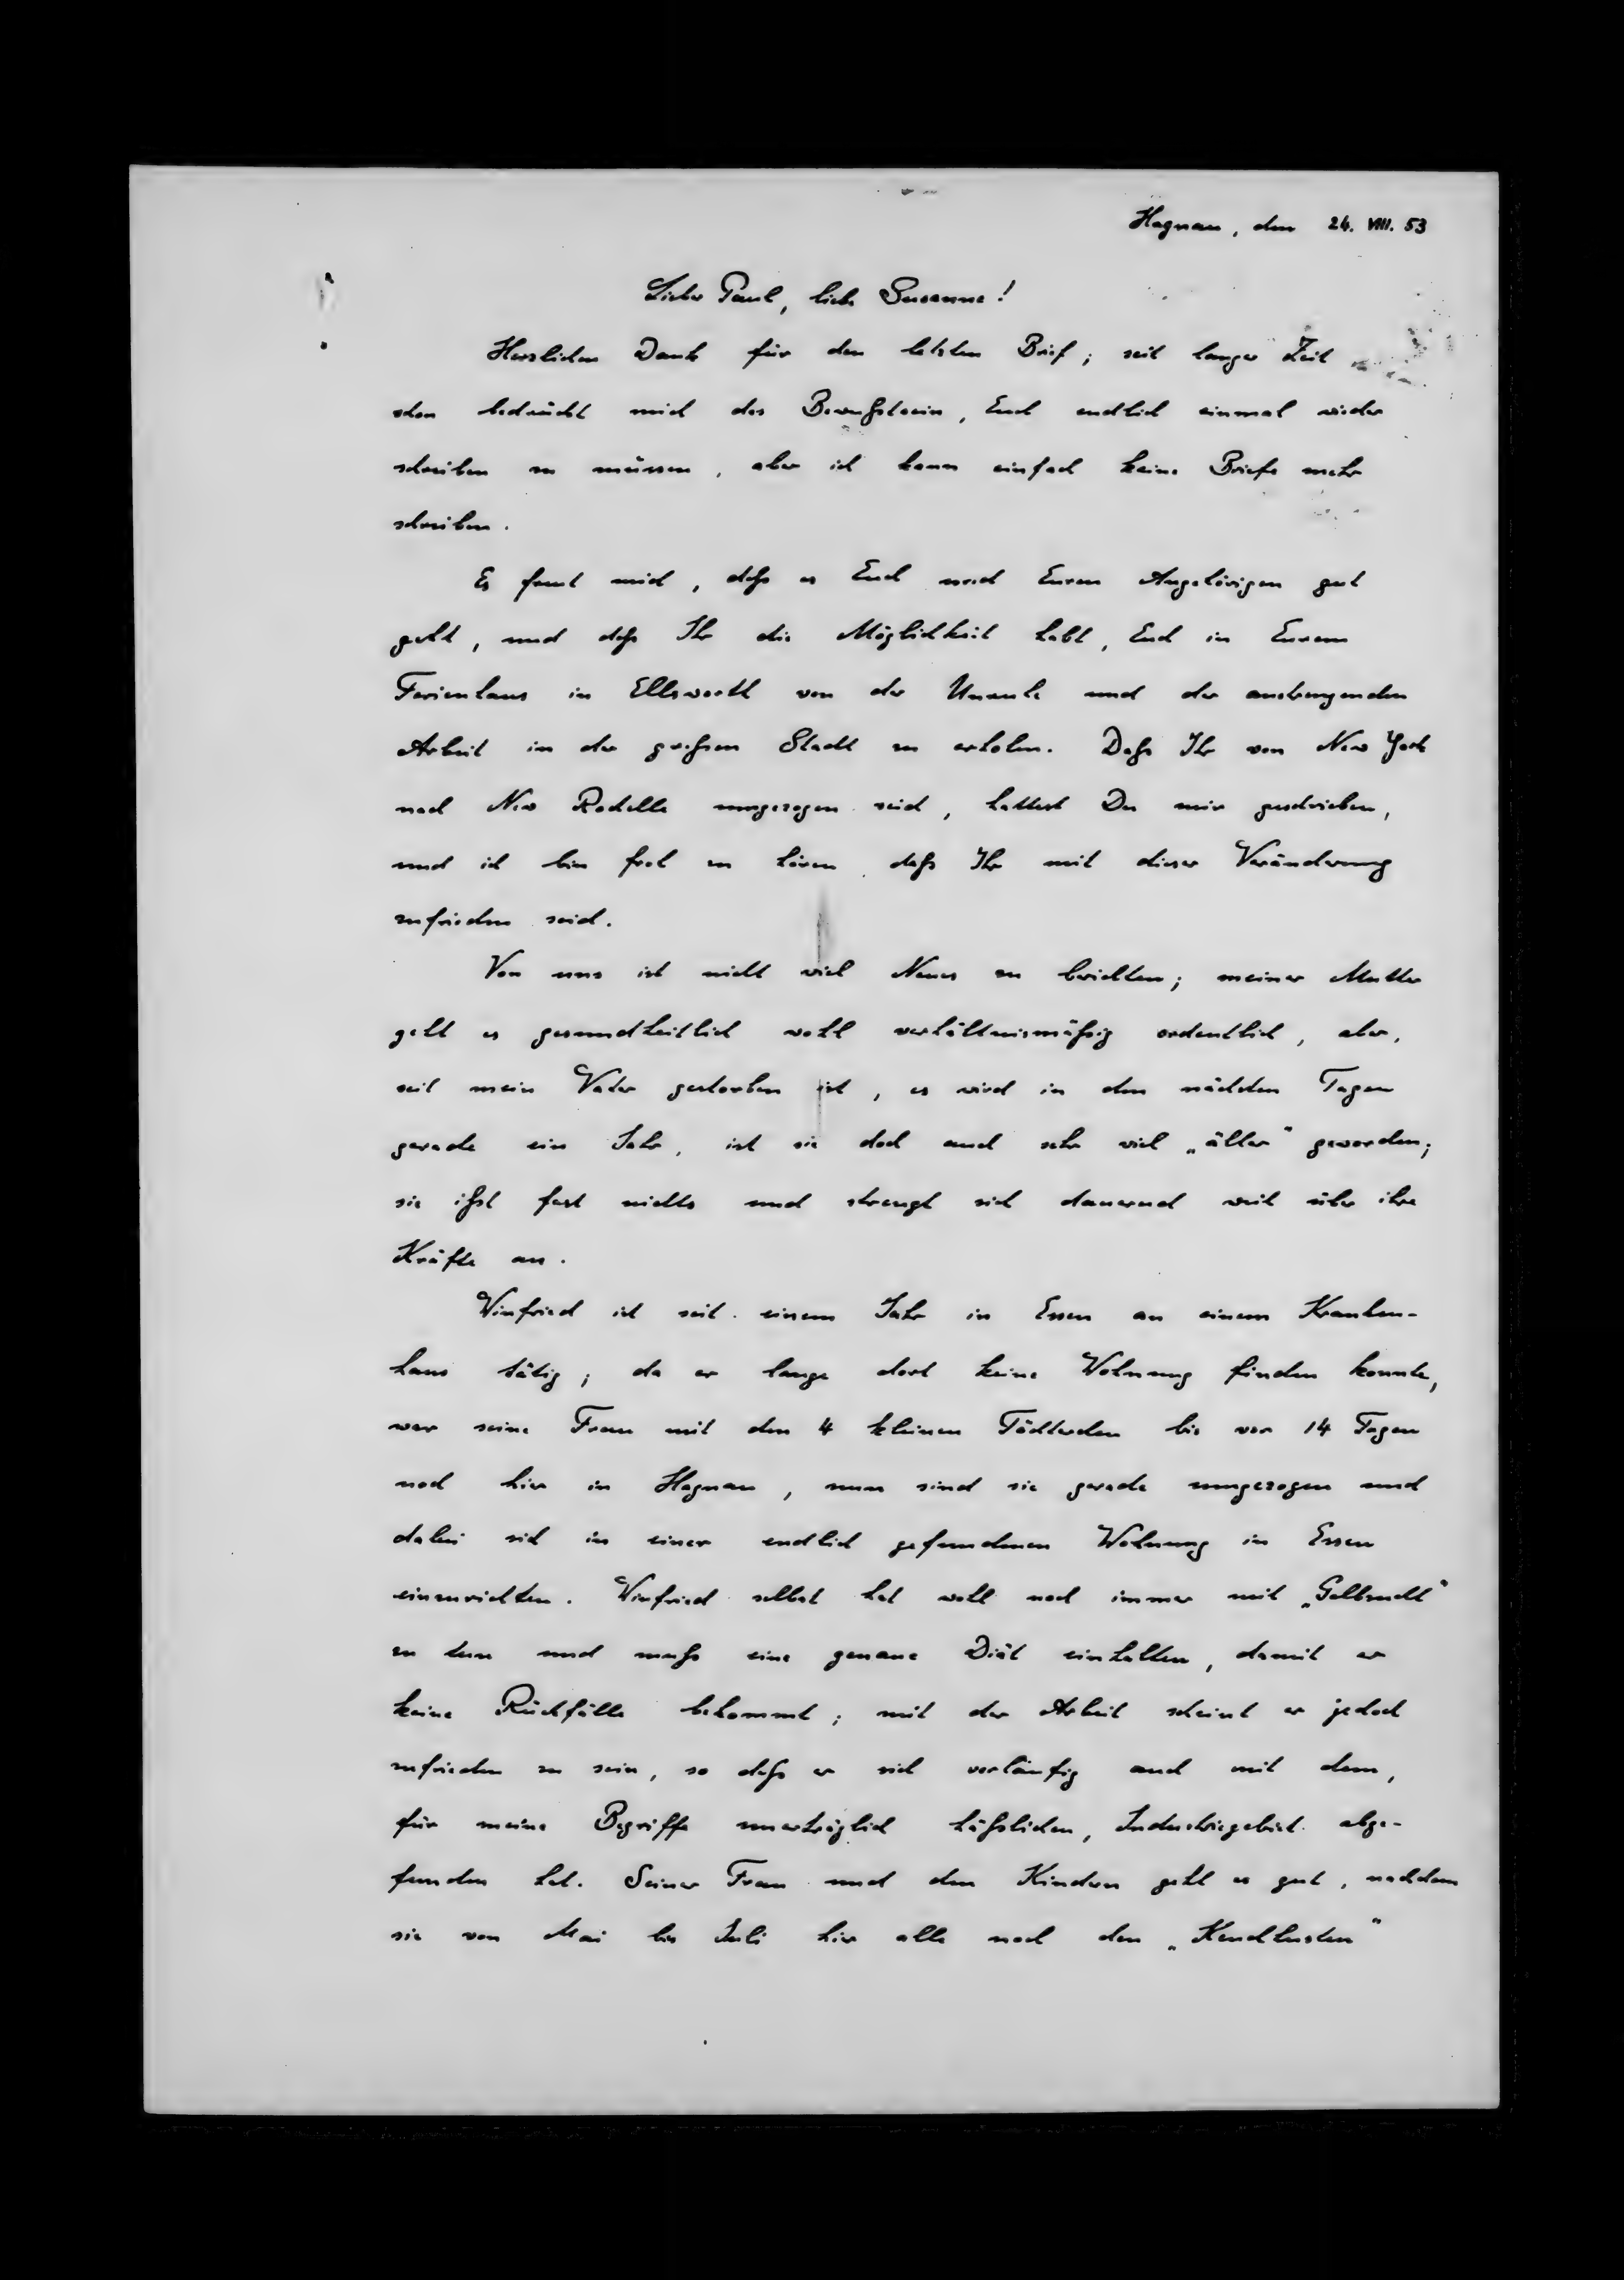 Hagnau, den 24. VIII. 53
Lieber Paul, liebe Susanne!
Herzlichen Dank für den letzten Brief; seit langer Zeit
schon bedrückt mich das Bewußtsein, Euch endlich einmal wieder
schreiben zu müssen, aber ich kann einfach keine Briefe mehr
schreiben.
Es freut mich, daß es Euch und Euren Angehörigen gut
geht, und daß Ihr die Möglichkeit habt, Euch in Eurem
Ferienhaus in Ellsworth von der Unruhe und der anstrengenden
Arbeit in der großen Stadt zu erholen. Daß Ihr von New York
nach New Rochelle umgezogen seid, hattest Du mir geschrieben,
und ich bin froh zu hören, daß Ihr mit dieser Veränderung
zufrieden seid.
Von uns ist nicht viel Neues zu berichten; meiner Mutter
geht es gesundheitlich wohl verhältnismäßig ordentlich, aber,
seit mein Vater gestorben ist, es wird in den nächsten Tagen
gerade ein Jahr, ist sie doch auch sehr viel „älter“ geworden;
sie ißt fast nichts und strengt sich dauernd weit über ihre
Kräfte an.
Winfried ist seit einem Jahr in Essen an einem Kranken-
haus tätig; da er lange dort keine Wohnung finden konnte,
war seine Frau mit den 4 kleinen Töchterchen bis vor 14 Tagen
noch hier in Hagnau, nun sind sie gerade umgezogen und
dabei sich in einer endlich gefundenen Wohnung in Essen
einzurichten. Winfried selbst hat wohl noch immer mit „Gelbsucht“
zu tun und muß eine genaue Diät einhalten, damit er
keine Rückfälle bekommt; mit der Arbeit scheint er jedoch
zufrieden zu sein, so daß er sich vorläufig auch mit dem,
für meine Begriffe unerträglich häßlichen, Industriegebiet abge-
funden hat. Seiner Frau und den Kindern geht es gut, nachdem
sie von Mai bis Juli hier alle noch den „Keuchhusten“